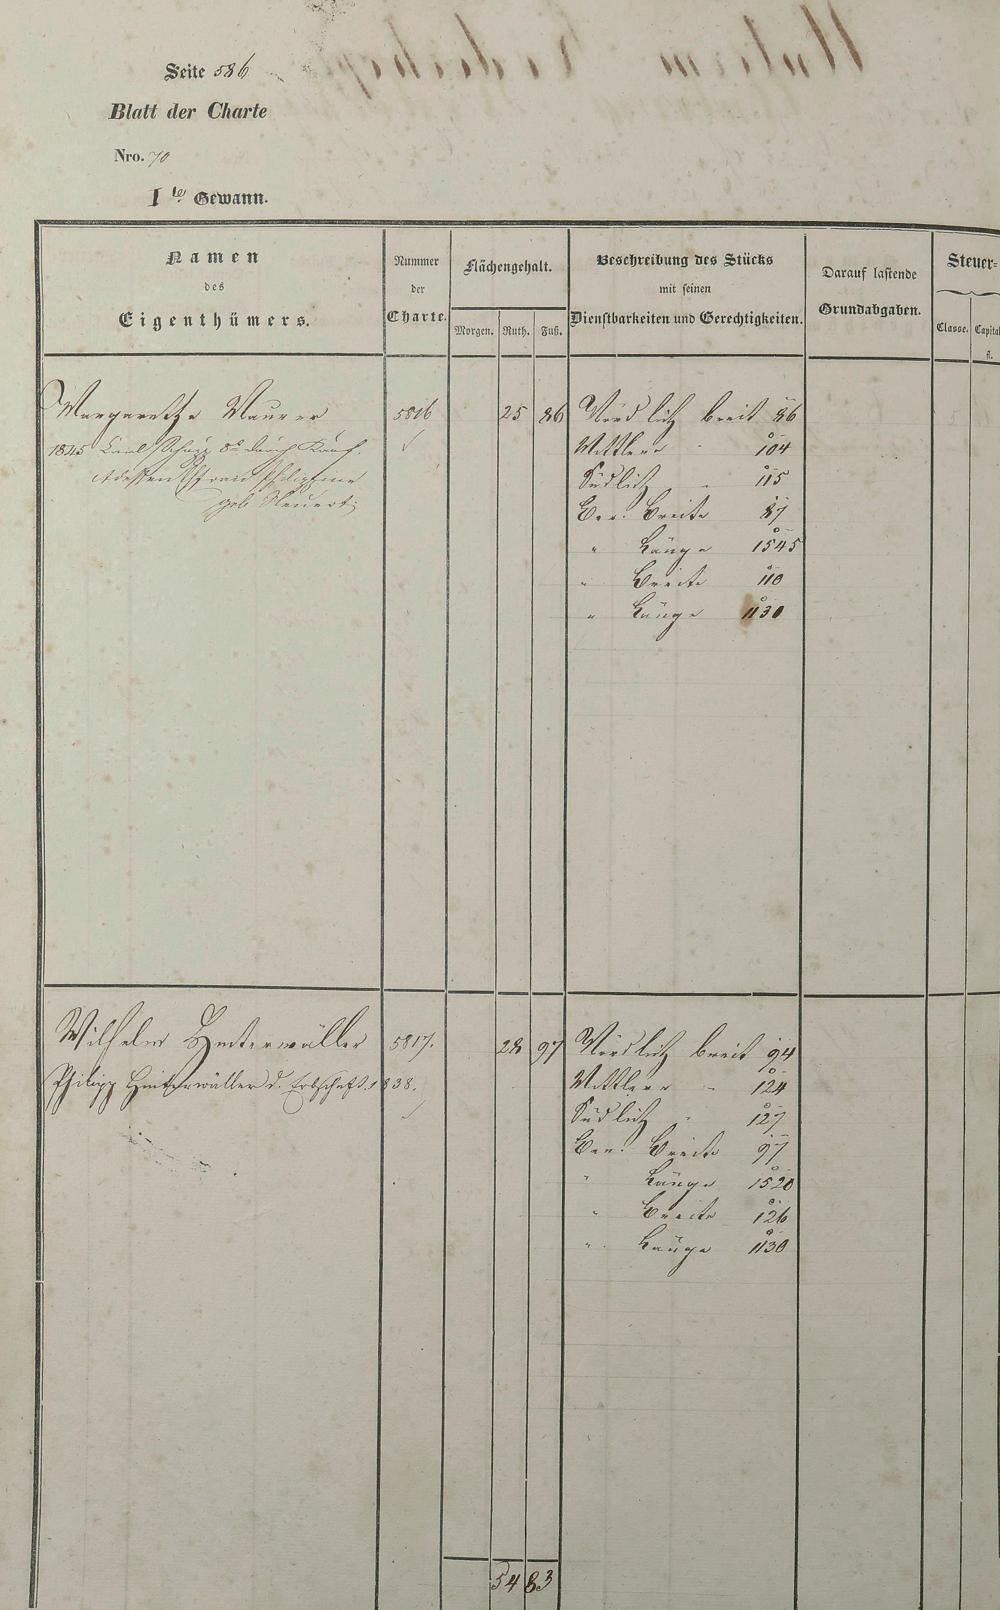 Seite 586
Blatt der Charte
Nro. 70
1te Gewann.
Namen des Eigenthümers.
Nummer der Charte.
Flächengehalt.
Morgen. Ruth. Fuß.
Beschreibung des Stücks mit seinen Dienstbarkeiten und Gerechtigkeiten.
Darauf lastende Grundabgaben.
Steuer=
Classe. Capital fl.
Margaretha Maurer 5816 25 86 Nördlich breit 86
Mittlere " 104
1845 Carl durch Kauf.
Südlich " 115
dessen Ehefrau Philippine
geb.
Ber. Breite 87
" Länge 1545
" Breite 110
" Länge 1130
Wilhelm Hinterwäller 5817. 28 97 Nördlich breit 94
Philipp Hinterwäller d. Erbschaft. 1838. Mittlere " 124
Südlich " 127
Ber. Breite 97
" Länge 1520
" Breite 126
" Länge 1130
54 83